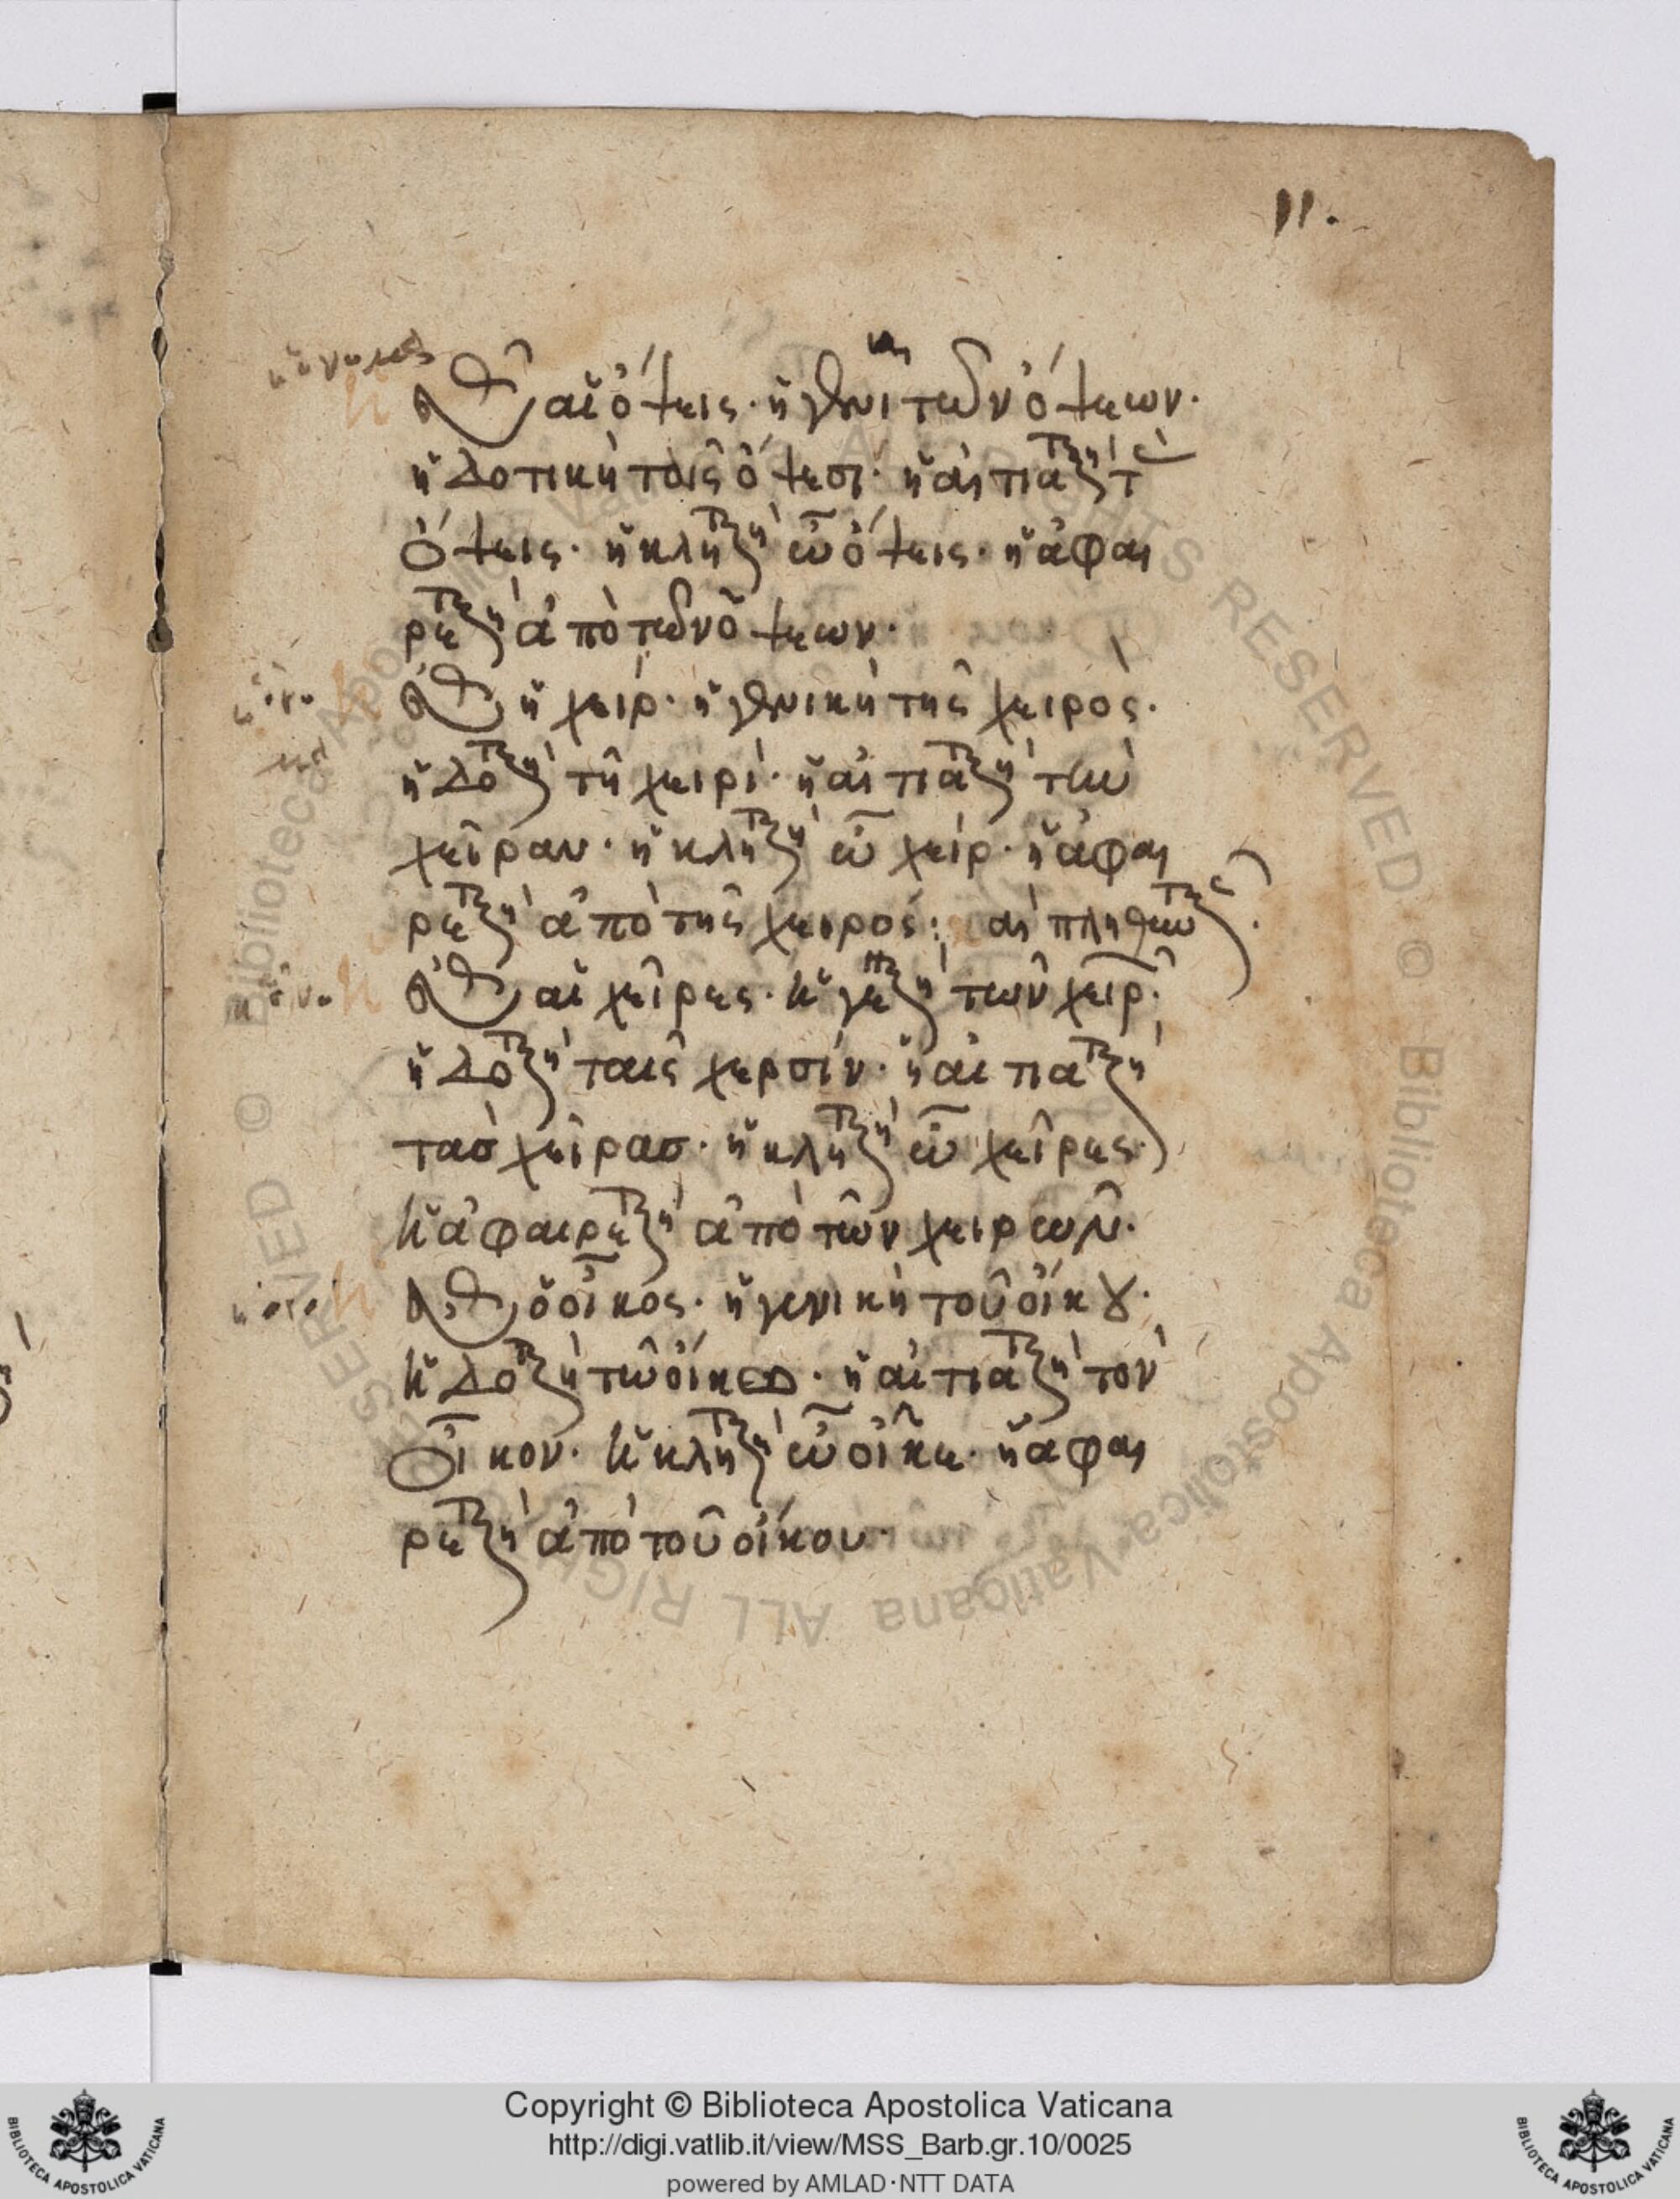 11.
αἱ ὄψεις· ἡ γενικὴ τῶν ὄψεων·
ἡ δοτικὴ τοῖς ὄψεσι· ἡ αἰτιατικὴ τ
ὄψεις· ἡ κλητικὴ ὦ ὄψεις· ἡ ἀφαι
ρετικὴ ἀπὸ τῶν ὄψεων·
ἡ χείρ· ἡ γενικὴ τῆς χειρός·
ἡ δοτικὴ τῇ χειρί· ἡ αἰτιατικὴ τὴν
χεῖραν· ἡ κλητικὴ ὦ χείρ· ἡ ἀφαι
ρετικὴ ἀπὸ τῆς χειρός: αἱ πληθυντικ
αἱ χεῖρες· ἡ γενικὴ τῶν χειρ·
ἡ δοτικὴ ταῖς χερσίν· ἡ αἰτιατικὴ
τὰσ χεῖρασ· ἡ κλητικὴ ὦ χεῖρες·
ἡ ἀφαιρετικὴ ἀπὸ τῶν χειρῶν·
ὁ οἶκος· ἡ γενικὴ τοῦ οἴκου·
ἡ δοτικὴ τῶ οἴκω· ἡ αἰτιατικὴ τὸν
οἶκον· ἡ κλητικὴ ὦ οἶκε· ἡ ἀφαι
ρετικὴ ἀπὸ τοῦ οἴκου·
Copyright © Biblioteca Apostolica Vaticana
http://digi.vatlib.it/view/MSS_Barb.gr.10/0025
powered by AMLAD·NTT DATA
BIBLIOTECA APOSTOLICA VATICANA
BIBLIOTECA APOSTOLICA VATICANA